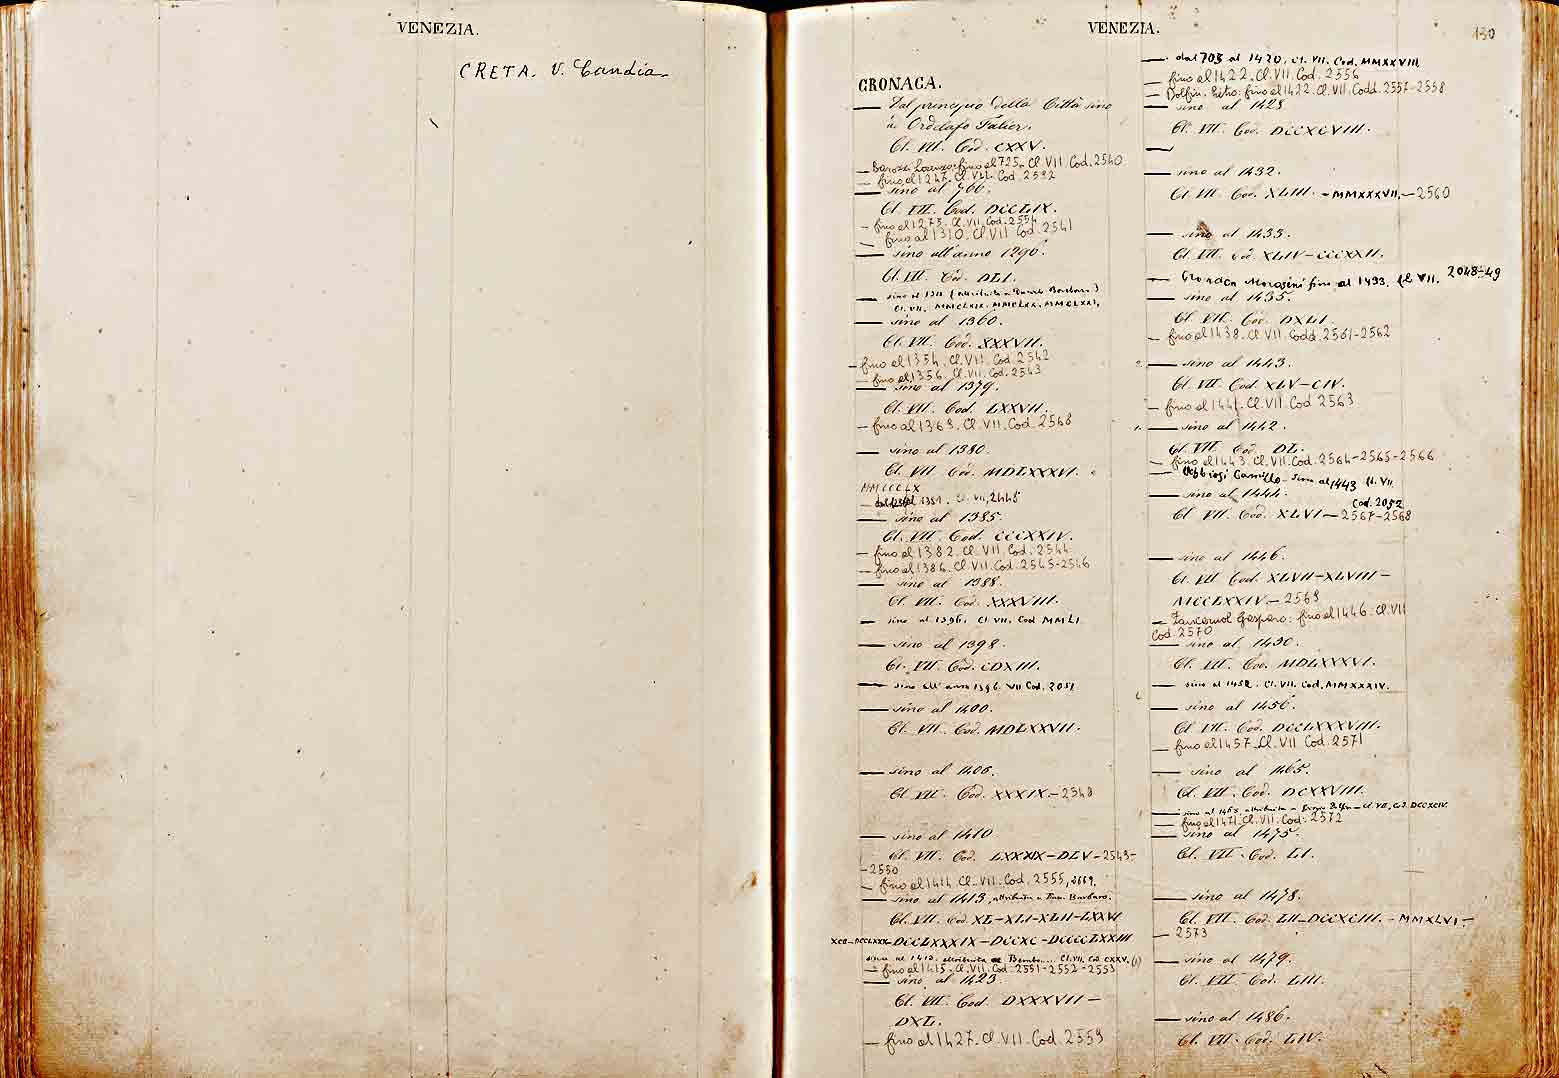 VENEZIA.
CRETA. V. Candia.
VENEZIA.
130
CRONACA.
— Dal principio della Città sino
a Ordelafo Falier.
Cl. VII. Cod. CXXV.
— Barozzi Lorenzo: fino al 725. Cl VII Cod. 2540
— fino al 1247. Cl. VII. Cod. 2592
— sino al 966.
Cl. VII. Cod. DCCLIX.
— fino al 1275. Cl. VII. Cod. 2554
— fino al 1310. Cl. VII Cod. 2541
— sino all'anno 1296.
Cl. VII. Cod. DLI.
— sino al 1311 (attribuita a Daniele Barbaro)
Cl. VII. MMCLXIX. MMCLXX. MMCLXXI.
— sino al 1360.
Cl. VII. Cod. XXXVII.
— fino al 1354. Cl. VII. Cod. 2542
— fino al 1356. Cl. VII. Cod. 2543
— sino al 1379.
Cl. VII. Cod. LXXVII.
— fino al 1363. Cl. VII. Cod. 2568
— sino al 1380.
Cl. VII Cod. MDLXXXVI.
MMCCCLX
— 1381. Cl. VII, 2448
— sino al 1385.
Cl. VII. Cod. CCCXXIV.
— fino al 1382. Cl. VII. Cod. 2544
— fino al 1386. Cl. VII. Cod. 2545-2546
— sino al 1388.
Cl. VII. Cod. XXXVIII.
— sino al 1396. Cl VII. Cod MMLI
— sino al 1398.
Cl. VII. Cod. CDXIII.
— sino all'anno 1396. VII Cod. 2051
— sino al 1400.
Cl. VII. Cod. MDLXXVII.
— sino al 1406.
Cl. VII. Cod. XXXIX. - 2548
— sino al 1410
Cl. VII. Cod. LXXXIX - DLV - 2549-
-2550
— fino al 1414. Cl. VII. Cod. 2555, 2669.
— sino al 1413, attribuita a Fran. Barbaro.
Cl. VII. Cod XL-XLI-XLII-LXXVI
XCII-DCCLXXX-DCCLXXXIX-DCCXC-DCCCCLXXIII
sino al 1413. attribuita al Bembo.... Cl. VII. Cod. CXXV. (1)
— fino al 1415. Cl. VII. Cod. 2551-2552-2553
— sino al 1423.
Cl. VII Cod. DXXXVII -
DXL.
— fino al 1427. Cl. VII. Cod. 2559
— dal 703 al 1420. Cl. VII. Cod. MMXXVIII
— fino al 1422. Cl. VII. Cod. 2556
— Dolfin. Pietro: fino al 1422. Cl. VII. Codd. 2557-2558
— sino al 1428
Cl. VII. Cod. DCCXCVIII.
—
— sino al 1432.
Cl VII Cod. XLIII. - MMXXXVII. - 2560
— sino al 1433.
Cl. VII. Cod XLIV-CCCXXII.
— Cronaca Morosini fino al 1433. Cl. VII. 2048-49
— sino al 1435.
Cl. VII. Cod. DXLI.
— fino al 1438. Cl. VII. Codd. 2561-2562
2. — sino al 1443.
Cl. VII. Cod XLV-CIV.
— fino al 1441. Cl. VII. Cod 2563
1. — sino al 1442.
Cl VII. Cod. DL.
— fino al 1443. Cl. VII. Cod. 2564-2565-2566
— Camillo - sino al 1443 Cl. VII
Cod. 2052
— sino al 1444.
Cl VII. Cod. XLVI - 2567-2568
— sino al 1446.
Cl. VII Cod. XLVII-XLVIII-
MCCLXXIV. - 2569
— Zancaruol Gasparo: fino al 1446. Cl. VII
Cod. 2570
— sino al 1450.
Cl. VII. Cod. MDLXXXVI.
— sino al 1452. Cl. VII. Cod. MMXXXIV.
— sino al 1456.
Cl. VII Cod. DCCLXXXVIII.
— fino al 1457. Cl. VII Cod. 2571
— sino al 1465.
Cl. VII. Cod. DCXXVIII.
— sino al 1465 attribuita a Dolfin - Cl. VII, Cod. DCCXCIV.
— fino al 1471. Cl. VII. Cod. 2572
— sino al 1475.
Cl. VII. Cod. LI.
— sino al 1478.
Cl. VII. Cod. LII-DCCXCIII. - MMXLVI -
— 2573
— sino al 1479.
Cl. VII Cod. LIII.
— sino al 1486.
Cl. VII. Cod. LIV.